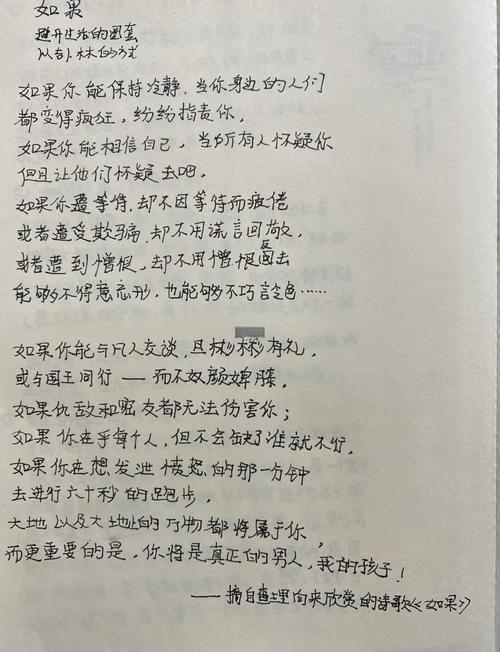 如果
避开生活的圈套
从吉卜林的方式
如果你能保持冷静，当你身边的人们
都变得疯狂，纷纷指责你，
如果你能相信自己，当所有人怀疑你
但且让他们怀疑去吧。
如果你遭等待，却不因等待而疲倦
或者遭受欺骗，却不用谎言回敬，
或者遭到憎恨，却不用憎恨反去
能够不得意忘形，也能够不巧言令色……
如果你能与凡人交谈，且彬彬有礼，
或与国王同行——而不奴颜婢膝。
如果仇敌和密友都无法伤害你；
如果你在乎每个人，但不会缺了谁就不行。
如果你在想发泄愤怒的那一分钟
去进行六十秒的跑步。
大地以及大地的万物都将属于你，
而更重要的是，你将是真正的男人，我的孩子！
——摘自查理向来欣赏的诗歌《如果》